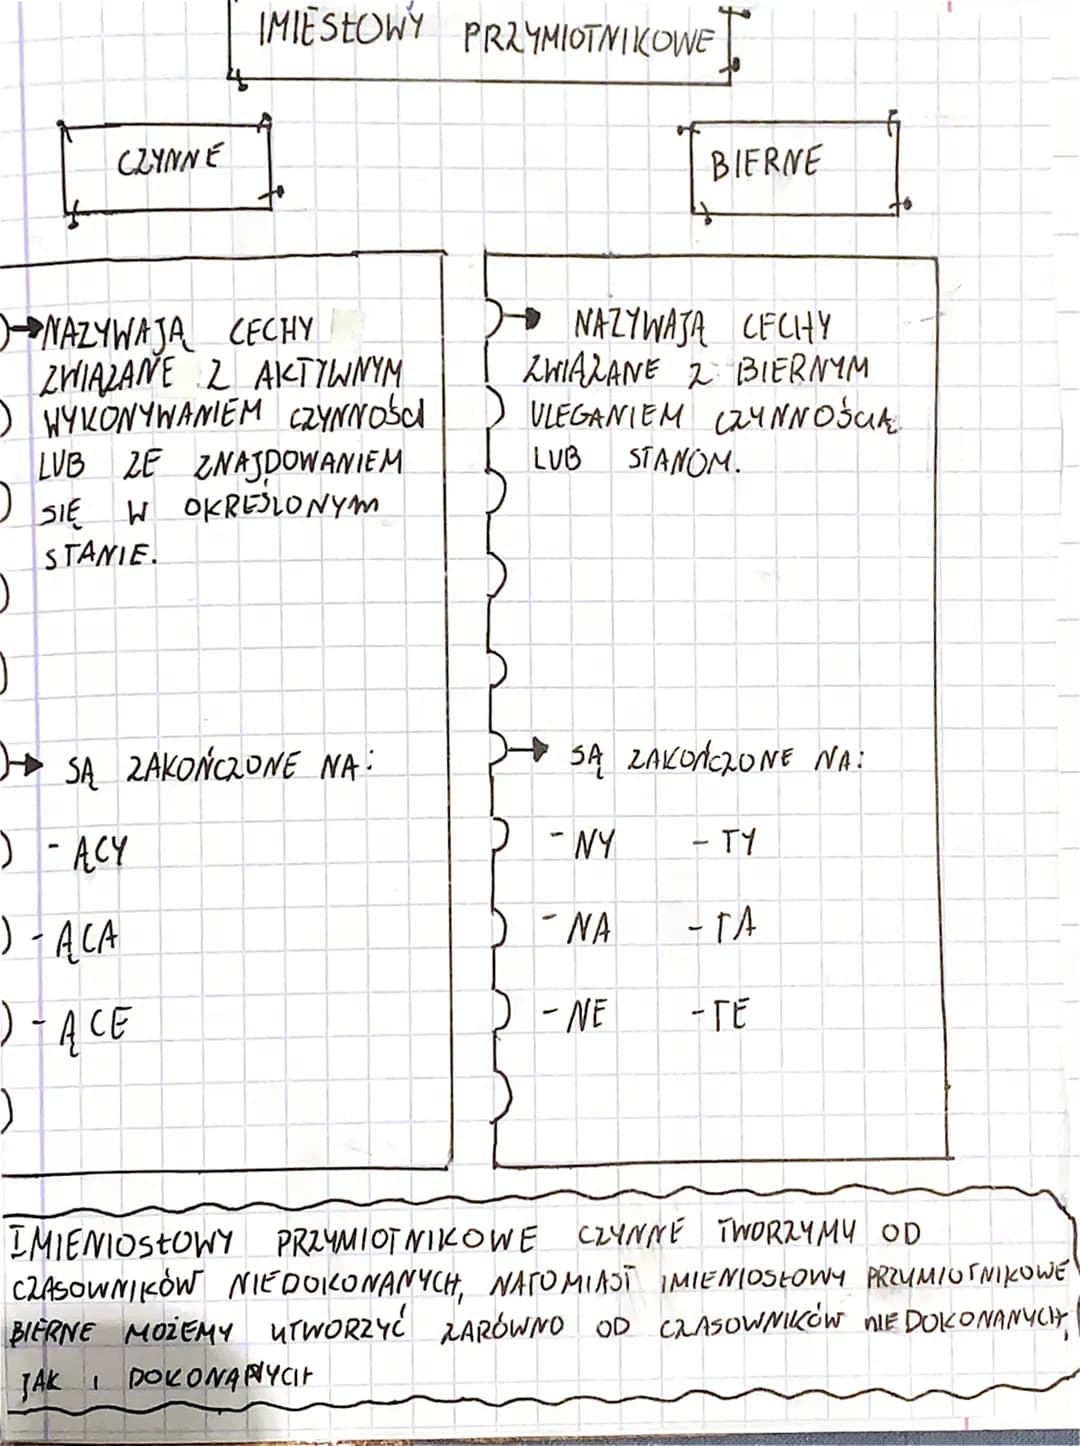 IMIESŁOWY PRZYMIOTNIKOWE
CZYNNE
BIERNE
NAZYWAJĄ CECHY
ZWIĄZANE Z AKTYWNYM
WYKONYWANIEM CZYNNOŚCI
LUB ZE ZNAJDOWANIEM
SIĘ W OKREŚLONYM
STANIE.
SĄ ZAKOŃCZONE NA:
- ĄCY
- ĄCA
- ĄCE
NAZYWAJĄ CECHY
ZWIĄZANE Z BIERNYM
ULEGANIEM
LUB STANOM.
SĄ ZAKOŃCZONE NA:
- NY - TY
- NA - TA
- NE - TE
IMIENIOSŁOWY PRZYMIOTNIKOWE CZYNNE TWORZYMY OD
CZASOWNIKÓW NIEDOKONANYCH, NATOMIAST IMIENIOSŁOWY PRZYMIOTNIKOWE
BIERNE MOŻEMY UTWORZYĆ ZARÓWNO OD CZASOWNIKÓW NIEDOKONANYCH,
JAK I DOKONANYCH